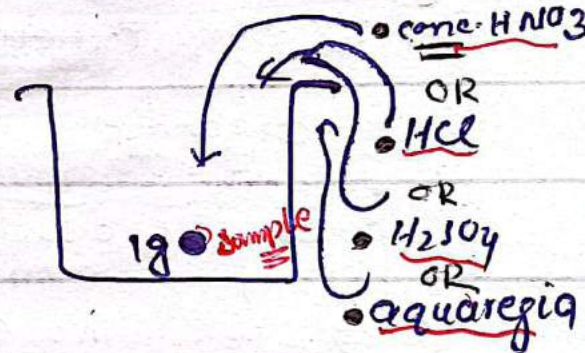 conc. HNO3
OR
HCl
OR
H2SO4
OR
aquaregia
1g sample